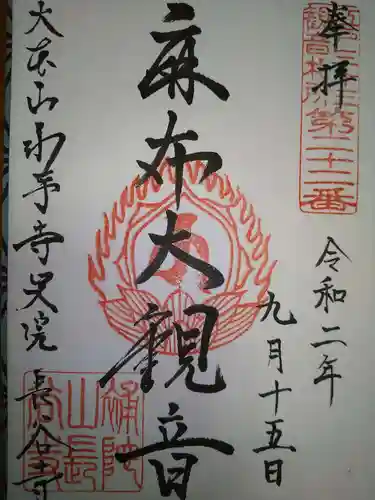 奉拝
観音札所第二十二番
令和二年
九月十五日
麻布大観音
大本山永平寺別院
長谷寺